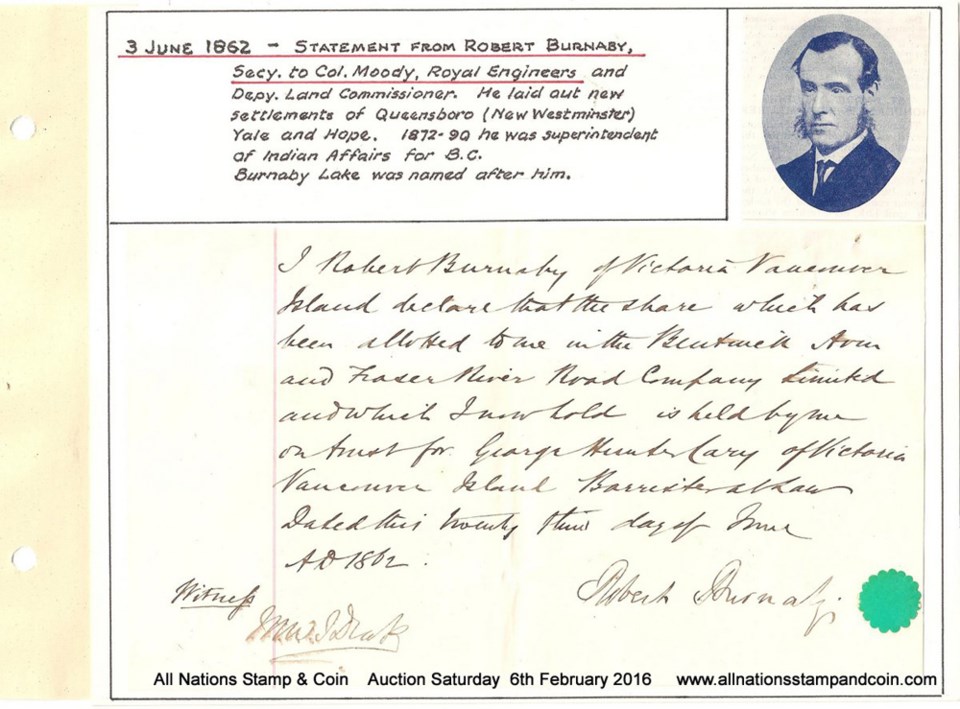 3 JUNE 1862 - STATEMENT FROM ROBERT BURNABY,
Secy. to Col. Moody, Royal Engineers and
Depy. Land Commissioner. He laid out new
settlements of Queensboro (New Westminster)
Yale and Hope. 1872-90 he was superintendent
of Indian Affairs for B.C.
Burnaby Lake was named after him.
I Robert Burnaby of Victoria Vancouver
Island declare that the share which has
been allotted to me in the Bentinck Arm
and Fraser River Road Company Limited
and which I now hold is held by me
on trust for George Hunter Cary of Victoria
Vancouver Island Barrister at Law
Dated this twenty third day of June
AD 1862.
Witness
Robert Burnaby
All Nations Stamp & Coin Auction Saturday 6th February 2016 www.allnationsstampandcoin.com